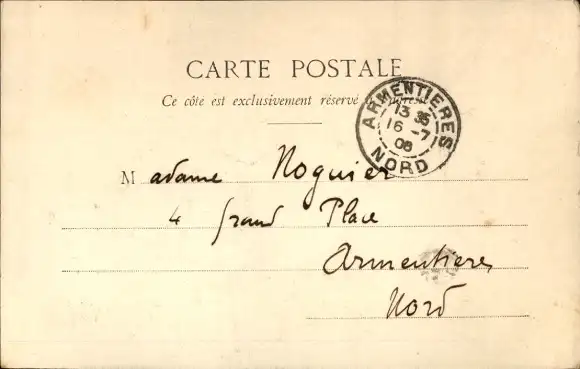 CARTE POSTALE
Ce côté est exclusivement réservé à l'adresse
ARMENTIERES
13 35
16 -7
08
NORD
Madame Noguier
4 Grand Place
Armentieres
Nord